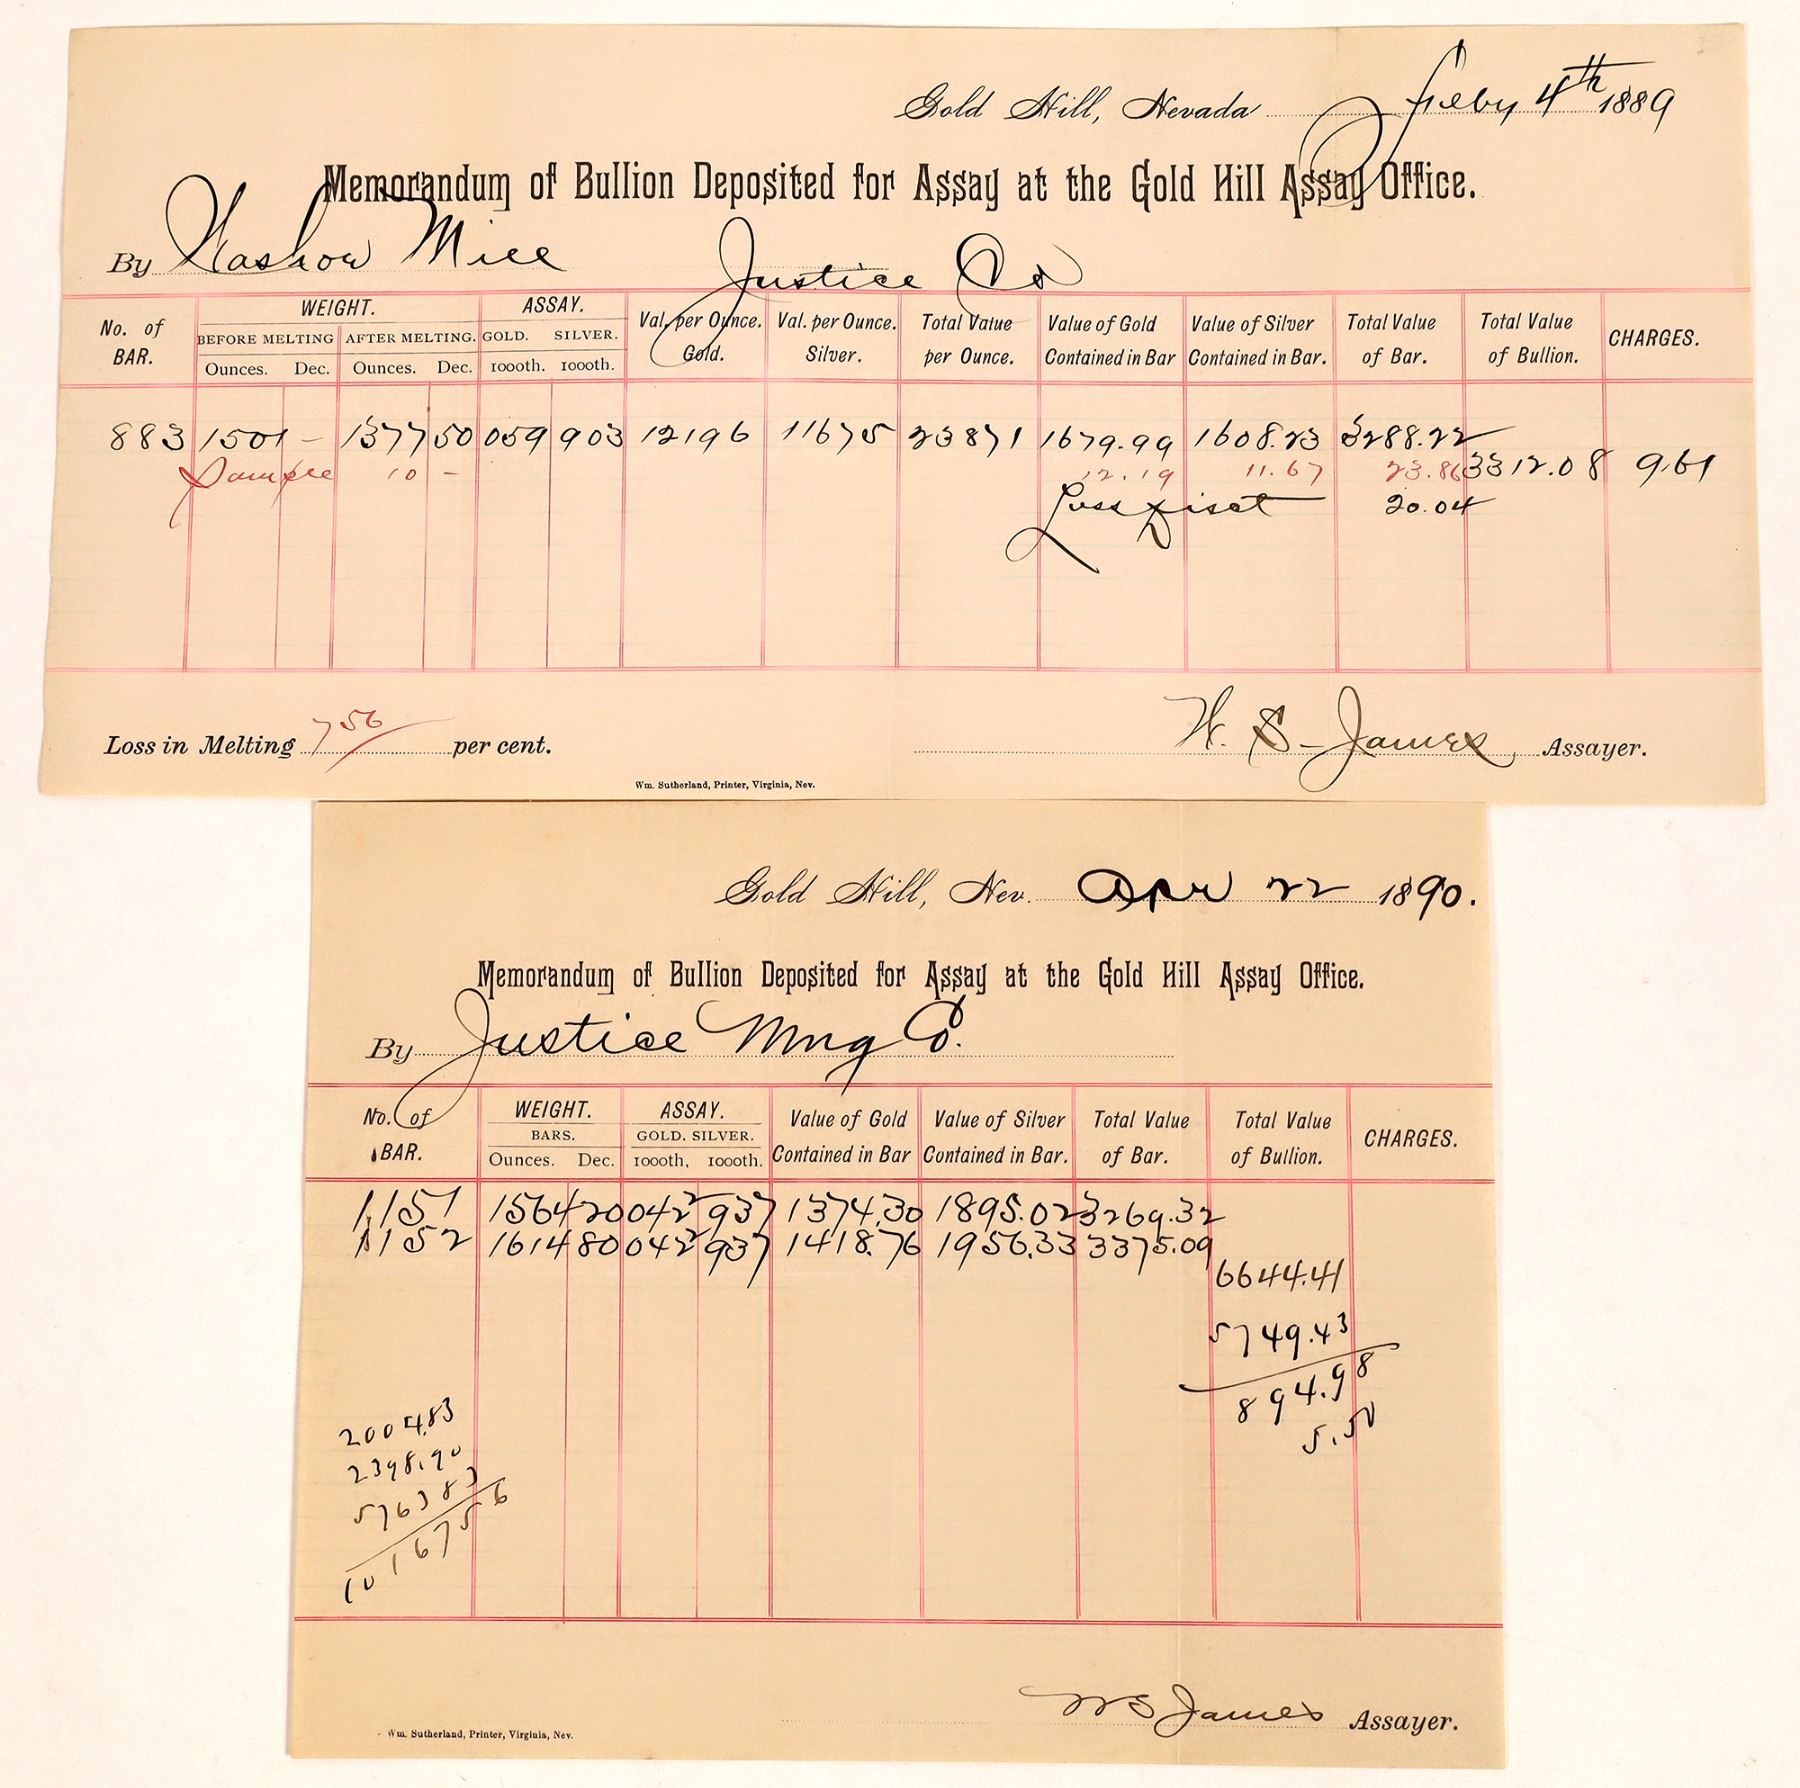 Gold Hill, Nevada Feby 4th 1889
Memorandum of Bullion Deposited for Assay at the Gold Hill Assay Office.
By Washow Mill Justice Co
No. of BAR. WEIGHT. ASSAY. Val. per Ounce. Gold. Val. per Ounce. Silver. Total Value per Ounce. Value of Gold Contained in Bar Value of Silver Contained in Bar. Total Value of Bar. Total Value of Bullion. CHARGES.
BEFORE MELTING AFTER MELTING. GOLD. SILVER.
Ounces. Dec. Ounces. Dec. 1000th. 1000th.
883 1501 – 1377 50 059 903 12196 11675 23871 1679.99 1608.23 3288.22
Sample 10 – 12.19 11.67 23.86 3312.08 9.61
Less Disct 20.04
Loss in Melting 7 56 per cent. W. S. James Assayer.
Wm. Sutherland, Printer, Virginia, Nev.
Gold Hill, Nev. Apr 22 1890.
Memorandum of Bullion Deposited for Assay at the Gold Hill Assay Office.
By Justice Mng Co.
No. of BAR. WEIGHT. ASSAY. Value of Gold Contained in Bar Value of Silver Contained in Bar. Total Value of Bar. Total Value of Bullion. CHARGES.
BARS. GOLD. SILVER.
Ounces. Dec. 1000th, 1000th.
1151 1564 20 042 937 1374.30 1895.02 3269.32
1152 1614 80 042 937 1418.76 1956.33 3375.09
6644.41
5749.43
894.98
5.50
2004.83
2398.90
5763 83
10167 56
WS James Assayer.
Wm. Sutherland, Printer, Virginia, Nev.